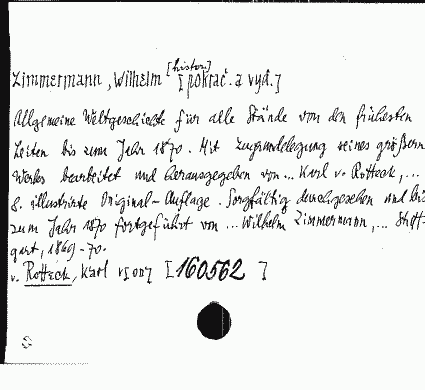 [histor.]
Zimmermann, Wilhelm [pokrač. a vyd.]
Allgemeine Weltgeschichte für alle Stände von den frühesten
Zeiten bis zum Jahr 1870. Mit Zugrundelegung seines größern
Werkes bearbeitet und herausgegeben von... Karl v. Rotteck, ...
8. illustrirte Original-Auflage. Sorgfältig durchgesehen und bis
zum Jahr 1870 fortgeführt von ... Wilhelm Zimmermann, ... Stutt-
gart, 1869-70.
v. Rotteck, Karl v[on] [160562 ]